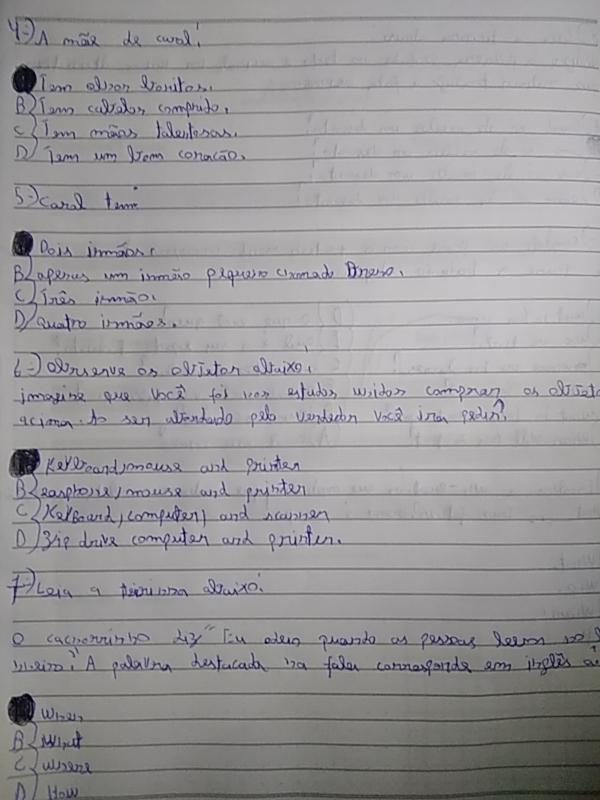 4-) A mãe de caral:
Tem olhos bonitos.
B) Tem cabelos comprido.
C) Tem mãos talentosas.
D) Tem um bom coração.
5-) Caral tem:
Dois irmãos.
B) apenas um irmão pequeno chamado
C) Três irmão.
D) Quatro irmães.
6-) Observe os objetos abaixo:
imagine que você foi nos estados unidos comprar os objeto
acima. Ao ser abordado pelo vendedor você irá pedir?
mouse and printer
B) mouse and printer
C) KeyBoard, computer, and scanner
D) Zip drive computer and printer.
7-) Leia a tirinha abaixo:
O cachorrinho diz "Eu odeio quando as pessoas leem no
A palavra destacada na fala corresponde em inglês a
When
B) What
C) Where
D) How